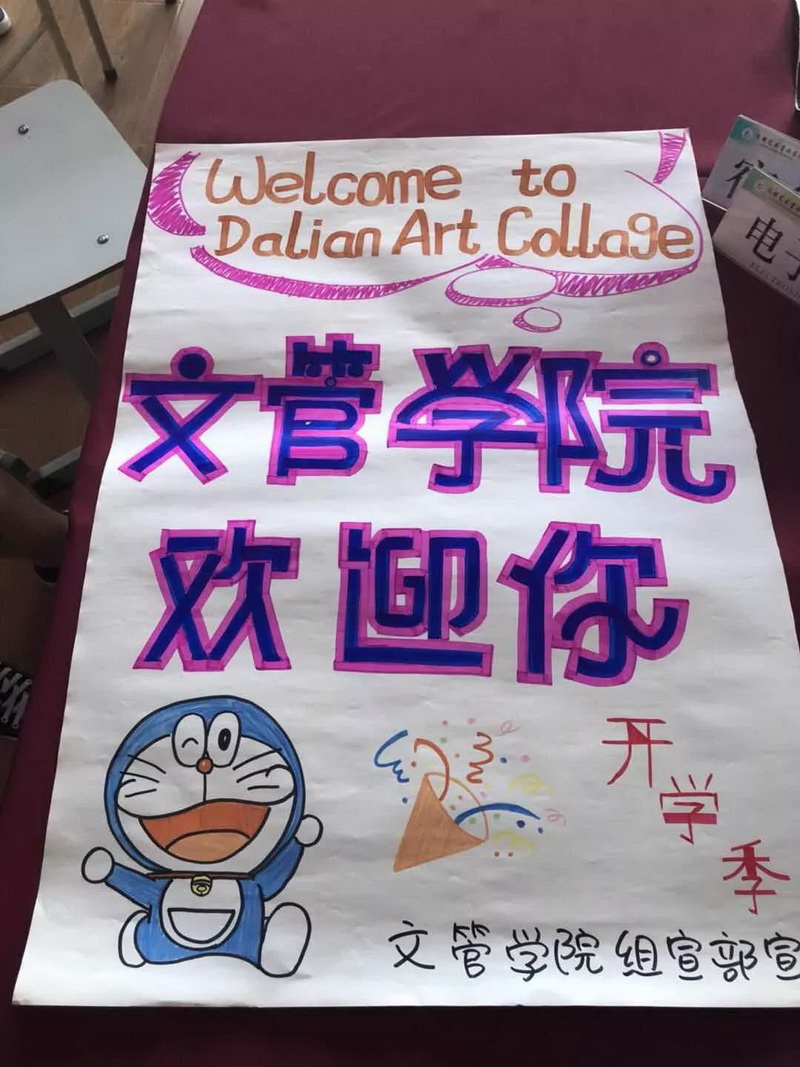 Welcome to
Dalian Art Collage
文管学院
欢迎你
开
学
季
文管学院组宣部宣
电子